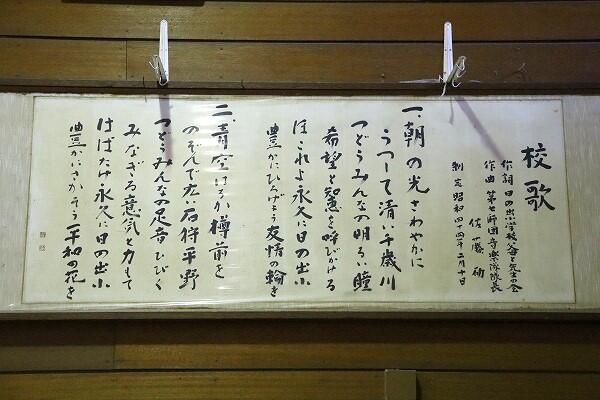 校歌
作詞 日の出小学校父母と先生の会
作曲 第七師団音楽隊隊長
佐藤
制定 昭和四十四年二月十日
一、朝の光さわやかに
うつして清い千歳川
つどうみんなの明るい瞳
希望と知恵を呼びかける
ほこれよ永久に日の出小
豊かにひろげよう友情の輪を
二、青空はるか樽前を
のぞんで広い石狩平野
つどうみんなの足音ひびく
みなぎる意気と力もて
はばたけ永久に日の出小
豊かにさかそう平和の花を